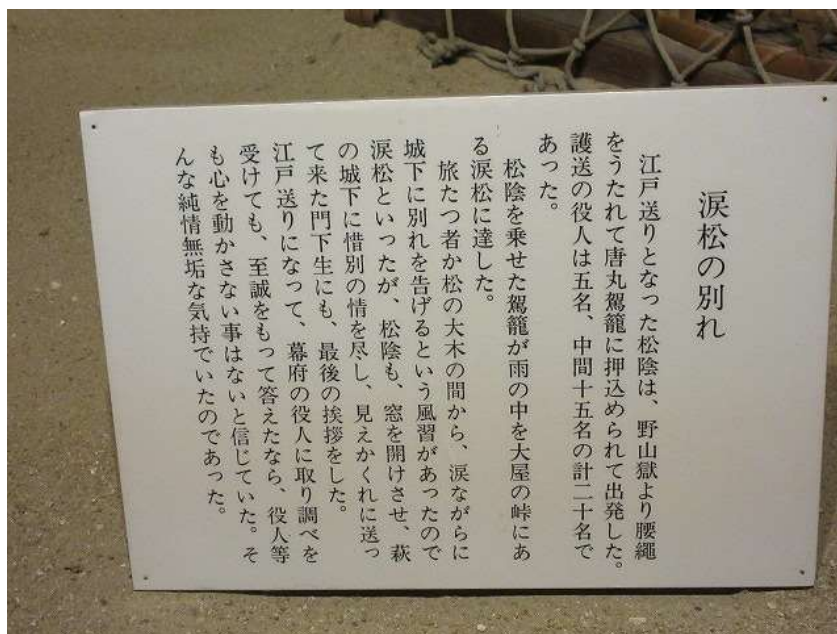 涙松の別れ
江戸送りとなった松陰は、野山獄より腰縄
をうたれて唐丸駕籠に押込められて出発した。
護送の役人は五名、中間十五名の計二十名で
あった。
松陰を乗せた駕籠が雨の中を大屋の峠にあ
る涙松に達した。
旅たつ者か松の大木の間から、涙ながらに
城下に別れを告げるという風習があったので
涙松といったが、松陰も、窓を開けさせ、萩
の城下に惜別の情を尽し、見えかくれに送っ
て来た門下生にも、最後の挨拶をした。
江戸送りになって、幕府の役人に取り調べを
受けても、至誠をもって答えたなら、役人等
も心を動かさない事はないと信じていた。そ
んな純情無垢な気持でいたのであった。